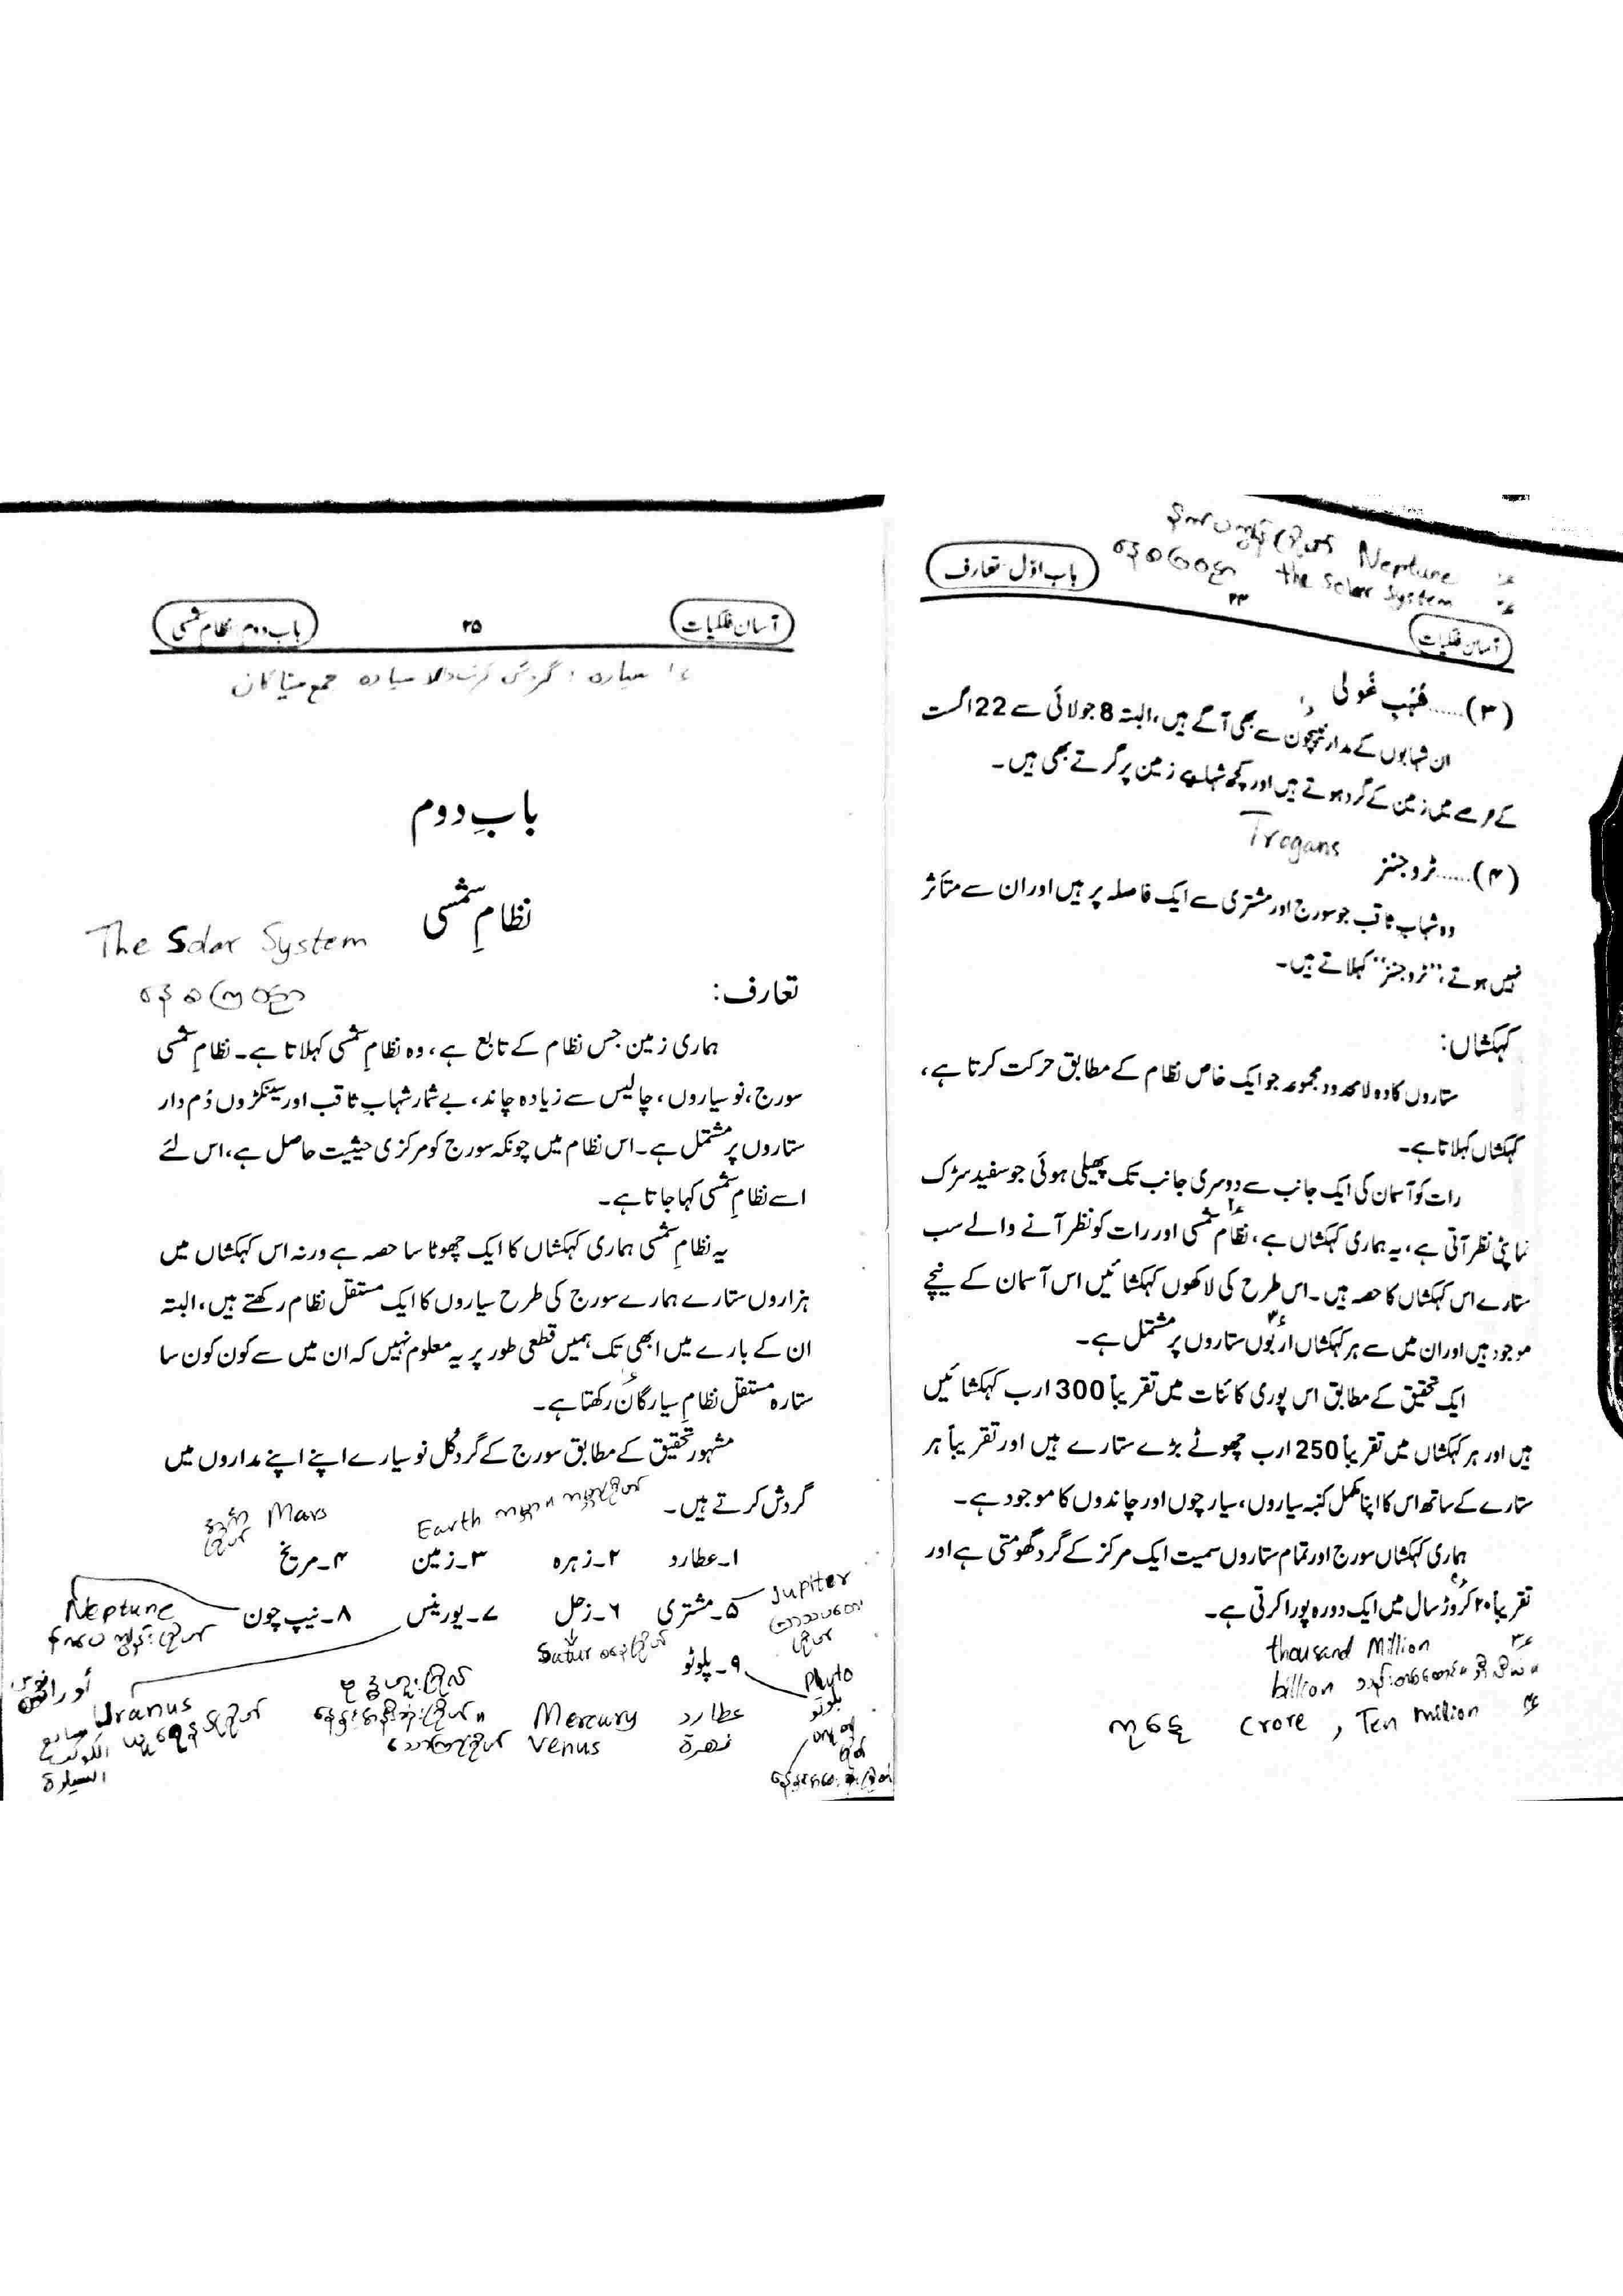 Neptune
နေစကြဝဠာ the Solar System
باب اوّل-تعارف
۲۴
آسان فلکیات
(۳)......شُہُبِ غُولی
ان شہابوں کے مدار نیپچون سے بھی آگے ہیں، البتہ 8 جولائی سے 22 اگست
کے عرصے میں زمین کے گرد ہوتے ہیں اور کچھ شہابے زمین پر گرتے بھی ہیں۔
Trogans
(۴)......ٹروجنز
وہ شہابِ ثاقب جو سورج اور مشتری سے ایک فاصلہ پر ہیں اور ان سے متأثر
نہیں ہوتے، "ٹروجنز" کہلاتے ہیں۔
کہکشاں:
ستاروں کا وہ لامحدود مجموعہ جو ایک خاص نظام کے مطابق حرکت کرتا ہے،
کہکشاں کہلاتا ہے۔
رات کو آسمان کی ایک جانب سے دوسری جانب تک پھیلی ہوئی جو سفید سڑک
نما پٹی نظر آتی ہے، یہ ہماری کہکشاں ہے، نظامِ شمسی اور رات کو نظر آنے والے سب
ستارے اس کہکشاں کا حصہ ہیں۔ اس طرح کی لاکھوں کہکشائیں اس آسمان کے نیچے
موجود ہیں اور ان میں سے ہر کہکشاں اربوں ستاروں پر مشتمل ہے۔
ایک تحقیق کے مطابق اس پوری کائنات میں تقریباً 300 ارب کہکشائیں
ہیں اور ہر کہکشاں میں تقریباً 250 ارب چھوٹے بڑے ستارے ہیں اور تقریباً ہر
ستارے کے ساتھ اس کا اپنا مکمل کنبہ سیاروں، سیارچوں اور چاندوں کا موجود ہے۔
ہماری کہکشاں سورج اور تمام ستاروں سمیت ایک مرکز کے گرد گھومتی ہے اور
تقریباً ۲۰ کروڑ سال میں ایک دورہ پورا کرتی ہے۔
thousand Million
billion
ကုဋေ Crore , Ten million
آسان فلکیات
۲۵
باب دوم-نظام شمسی
سیارہ : گردش کرنے والا سیارہ جمع
بابِ دوم
نظامِ شمسی
The Solar System
နေစကြဝဠာ
تعارف:
ہماری زمین جس نظام کے تابع ہے، وہ نظامِ شمسی کہلاتا ہے۔ نظامِ شمسی
سورج، نو سیاروں، چالیس سے زیادہ چاند، بے شمار شہابِ ثاقب اور سینکڑوں دُم دار
ستاروں پر مشتمل ہے۔ اس نظام میں چونکہ سورج کو مرکزی حیثیت حاصل ہے، اس لئے
اسے نظامِ شمسی کہا جاتا ہے۔
یہ نظامِ شمسی ہماری کہکشاں کا ایک چھوٹا سا حصہ ہے ورنہ اس کہکشاں میں
ہزاروں ستارے ہمارے سورج کی طرح سیاروں کا ایک مستقل نظام رکھتے ہیں، البتہ
ان کے بارے میں ابھی تک ہمیں قطعی طور پر یہ معلوم نہیں کہ ان میں سے کون کون سا
ستارہ مستقل نظامِ سیارگان رکھتا ہے۔
مشہور تحقیق کے مطابق سورج کے گرد کُل نو سیارے اپنے اپنے مداروں میں
گردش کرتے ہیں۔
Earth
Mars
۱۔عطارد ۲۔زہرہ ۳۔زمین ۴۔مریخ
Jupiter
۵۔مشتری ۶۔زحل ۷۔یورینس ۸۔نیپ چون
Neptune
Satur
۹۔پلوٹو
Pluto
بلوتو
Uranus
عطارد Mercury
زهرة Venus
الكوكب
السيارة